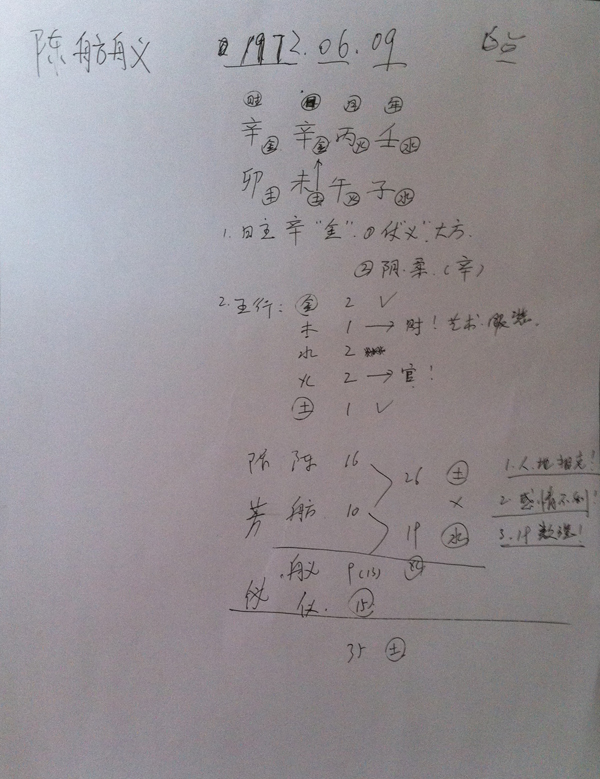 陈舫舣 1972.06.09
时 日 月 年
辛金 辛金 丙火 壬水
卯土 未土 午火 子水
1. 日主 辛"金". ① 仗"义", 大方.
② 阴.柔.(辛)
2. 五行: 金 2 ✓
木 1 → 财! 艺术.服装.
水 2
火 2 → 官!
土 1 ✓
陈 陈 16
26 土 1.人.地相克!
芳 舫 10 × 2.感情不利!
19 水 3.19数理!
舣 9(15)
仪 仪. 15
35 土